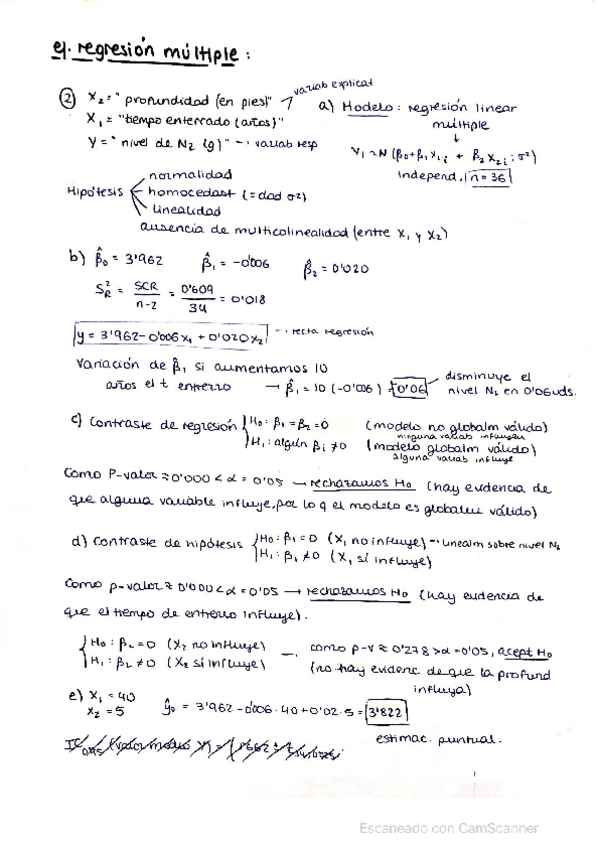 ej. regresión múltiple:
② X₂ = "profundidad (en pies)" variab explicat
X₁ = "tiempo enterrado (años)"
Y = "nivel de N₂ (g)" → variab resp
a) Modelo: regresión linear
múltiple
↓
Yi ~ N (β₀ + β₁X₁i + β₂X₂i ; σ²)
independ. n = 36
Hipótesis
normalidad
homocedast (=dad σ²)
linealidad
ausencia de multicolinealidad (entre X₁ y X₂)
b) β̂₀ = 3'962 β̂₁ = -0'006 β̂₂ = 0'020
S²R = SCR / n-2 = 0'609 / 34 = 0'018
y = 3'962 - 0'006x₁ + 0'020x₂ → recta regresión
Variación de β̂₁ si aumentamos 10
años el t entierro → β̂₁ = 10 (-0'006) = 0'06
disminuye el
nivel N₂ en 0'06 uds.
c) Contraste de regresión { H₀: β₁ = β₂ = 0 (modelo no globalm válido)
ninguna variab influyen
H₁: algún βi ≠ 0 (modelo globalm válido)
alguna variab influye
Como P-valor ≈ 0'000 < α = 0'05 → rechazamos H₀ (hay evidencia de
que alguna variable influye, por lo q el modelo es globalm válido)
d) Contraste de hipótesis { H₀: β₁ = 0 (X₁ no influye) → linealm sobre nivel N₂
H₁: β₁ ≠ 0 (X₁ sí influye)
Como p-valor ≈ 0'000 < α = 0'05 → rechazamos H₀ (hay evidencia de
que el tiempo de entierro influye).
{ H₀: β₂ = 0 (X₂ no influye) → como p-v ≈ 0'278 > α = 0'05, acept H₀
H₁: β₂ ≠ 0 (X₂ sí influye) (no hay evidenc de que la profund
influya)
e) X₁ = 40
X₂ = 5
ŷ₀ = 3'962 - 0'006 · 40 + 0'02 · 5 = 3'822
estimac. puntual.
Escaneado con CamScanner